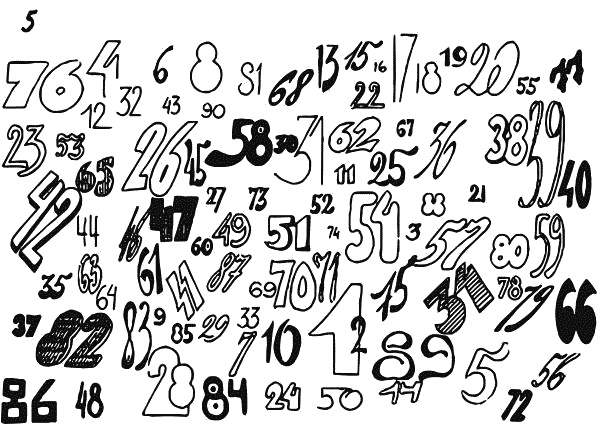 5
76 4 6 8 51 68 13 15 16 17 18 19 20 55 77
12 32 43 90 22
23 53 26 45 58 30 31 62 67 36 38 39
65 11 25 40
42 44 46 47 27 73 52 54 88 21
49 51 74 3 57 80 59
60
35 63 64 61 87 69 70 71 75 78 79 66
37 82 83 9 85 29 33 10 1 2 89 5 56
7
86 48 28 84 24 50 44 72